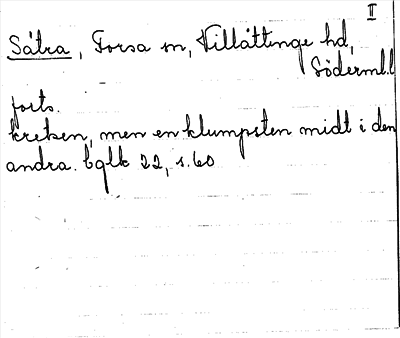 II
Sätra, Forsa sn, Villåttinge hd,
Söderml.l
forts.
kretsen, men en klumpsten midt i den
andra. bglk 22, s. 60